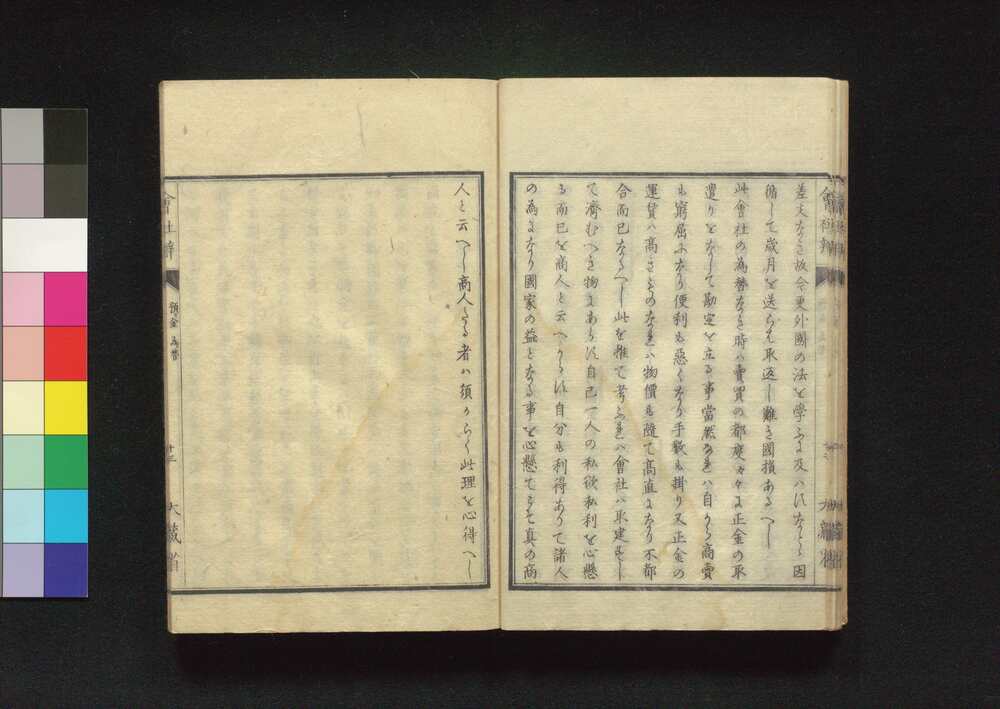 差支なき故今更外國の法を學ふに及ハすなとゝ因
循して歳月を送らも取返し難き國損あるへし
此會社の為替なき時ハ賣買の都度々々に正金の取
遣りをなして勘定を立る事當然なれハ自から商賣
も窮屈になり便利も惡くなり手數も掛り又正金の
運賃ハ高きものなれハ物價も隨て高直になり不都
合而已なるへし此を推て考ふれハ會社ハ取建すし
て濟むへき物にあらす自己一人の私欲私利を心懸
る而已を商人と云へからす自分も利得ありて諸人
の為になり國家の益となる事を心懸てこそ真の商
人と云へし商人たる者ハ須からく此理を心得へし
會社辨
預金 為替
十三
大藏省